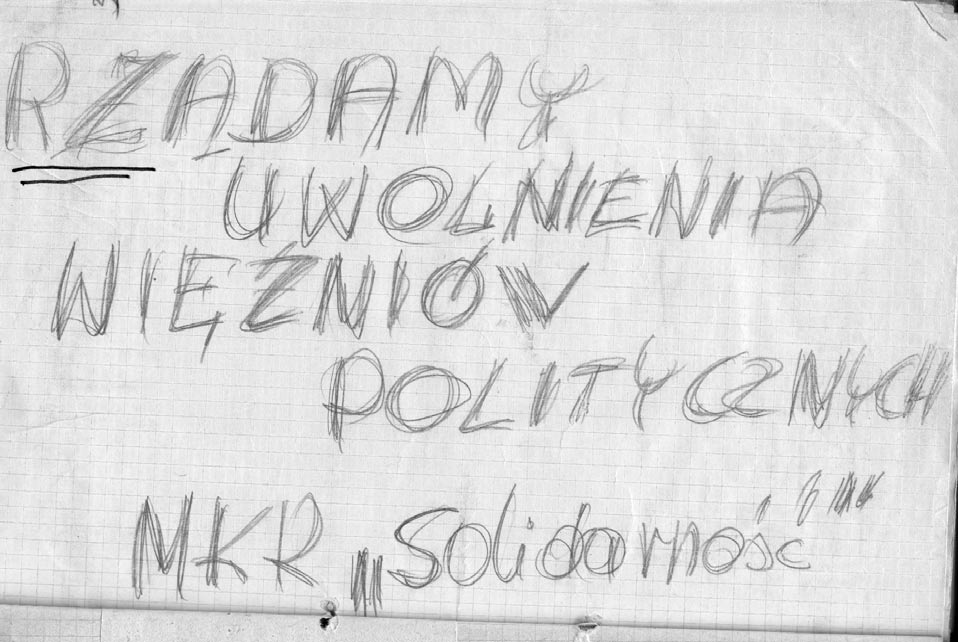 RZĄDAMY
UWOLNIENIA
WIĘŹNIÓW
POLITYCZNYCH
MKR „Solidarność"